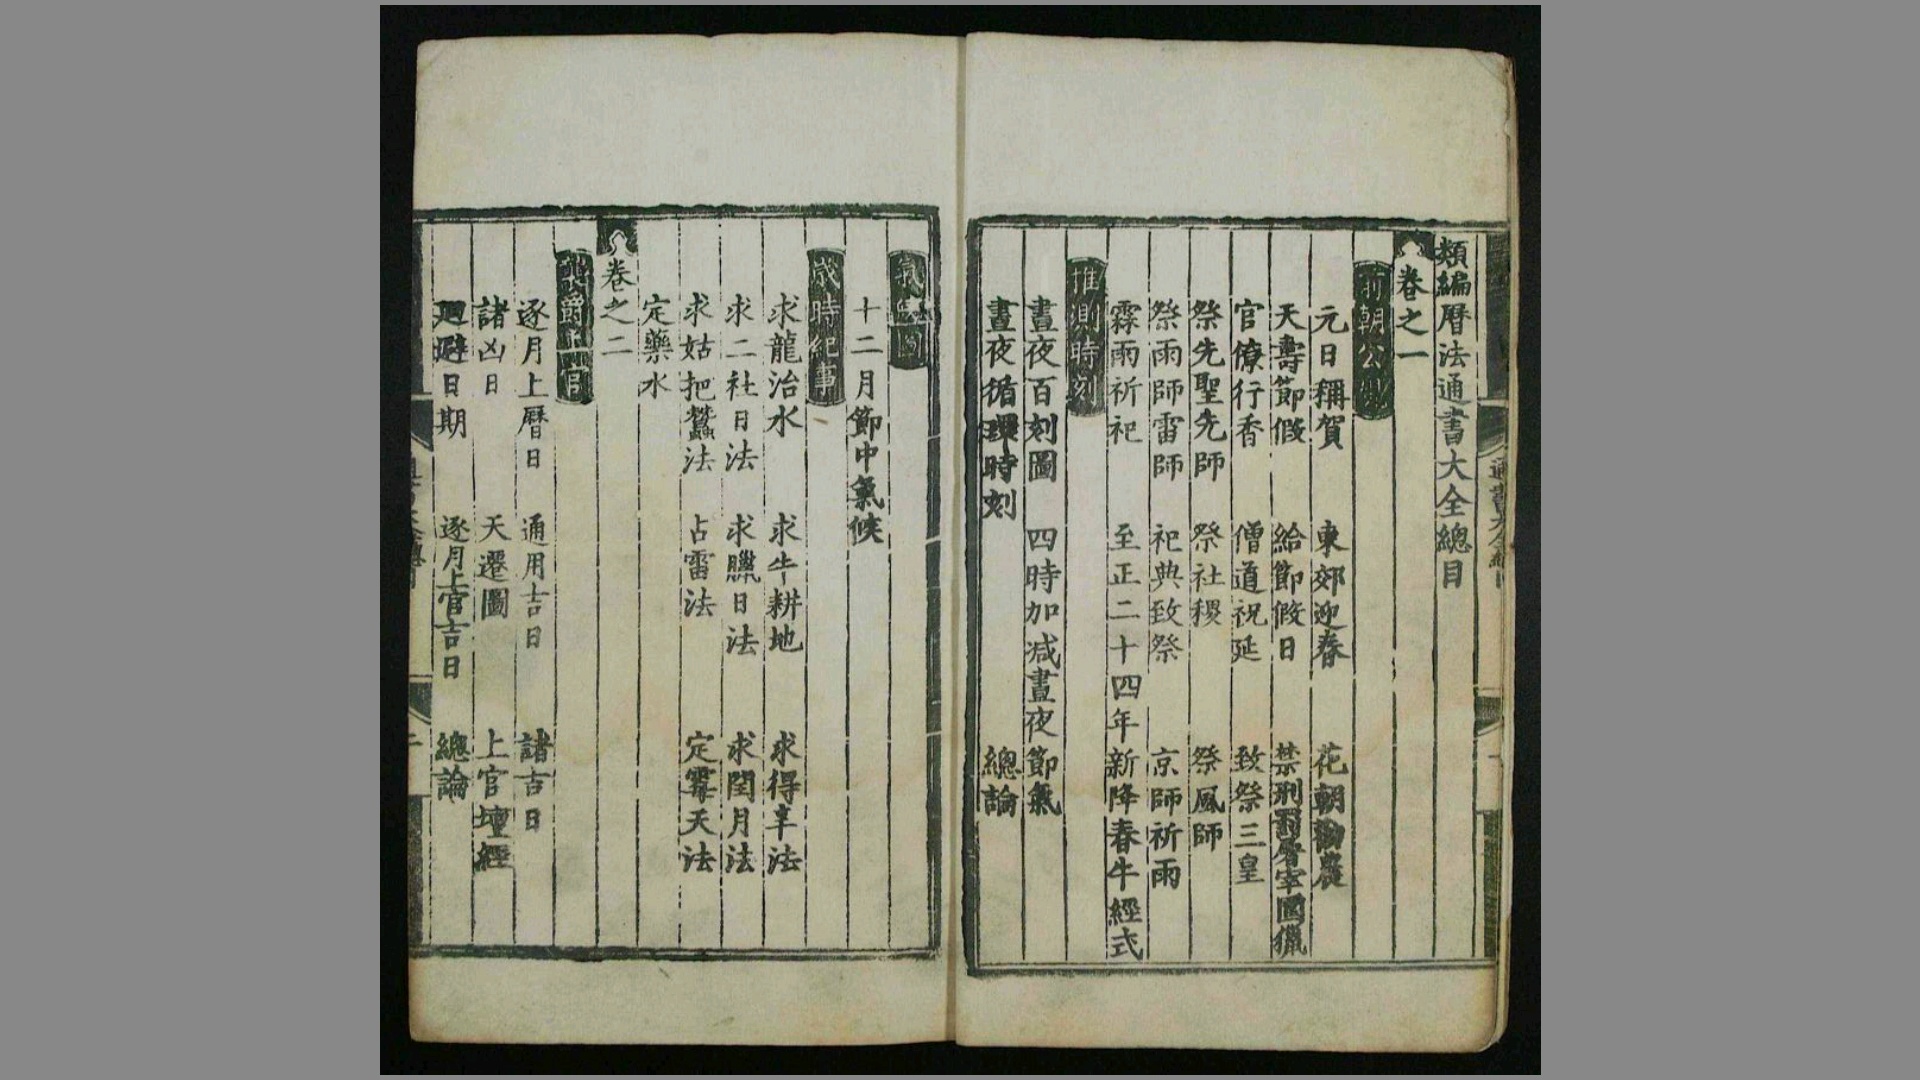 類編曆法通書大全總目
卷之一
前朝公
元日稱賀 東郊迎春 花朝勸農
天壽節假 給節假日 禁刑罰屠宰圍獵
官僚行香 僧道祝延 致祭三皇
祭先聖先師 祭社稷 祭風師
祭雨師雷師 祀典致祭 京師祈雨
霖雨祈祀 至正二十四年新降春牛經式
推測時刻
晝夜百刻圖 四時加减晝夜節氣
晝夜循環時刻 總論
氣 圖
十二月節中氣候
歲時紀事
求龍治水 求牛耕地 求得辛法
求二社日法 求臘日法 求閏月法
求姑把蠶法 占雷法 定霉天法
定藥水
卷之二
爵上
逐月上曆日 通用吉日 諸吉日
諸凶日 天遷圖 上官壇經
迴避日期 逐月上官吉日 總論